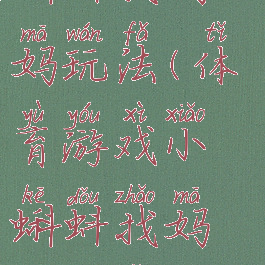 mā wán fǎ tǐ
妈玩法(体
yù yóu xì xiǎo
育游戏小
kē dǒu zhǎo mā
蝌蚪找妈